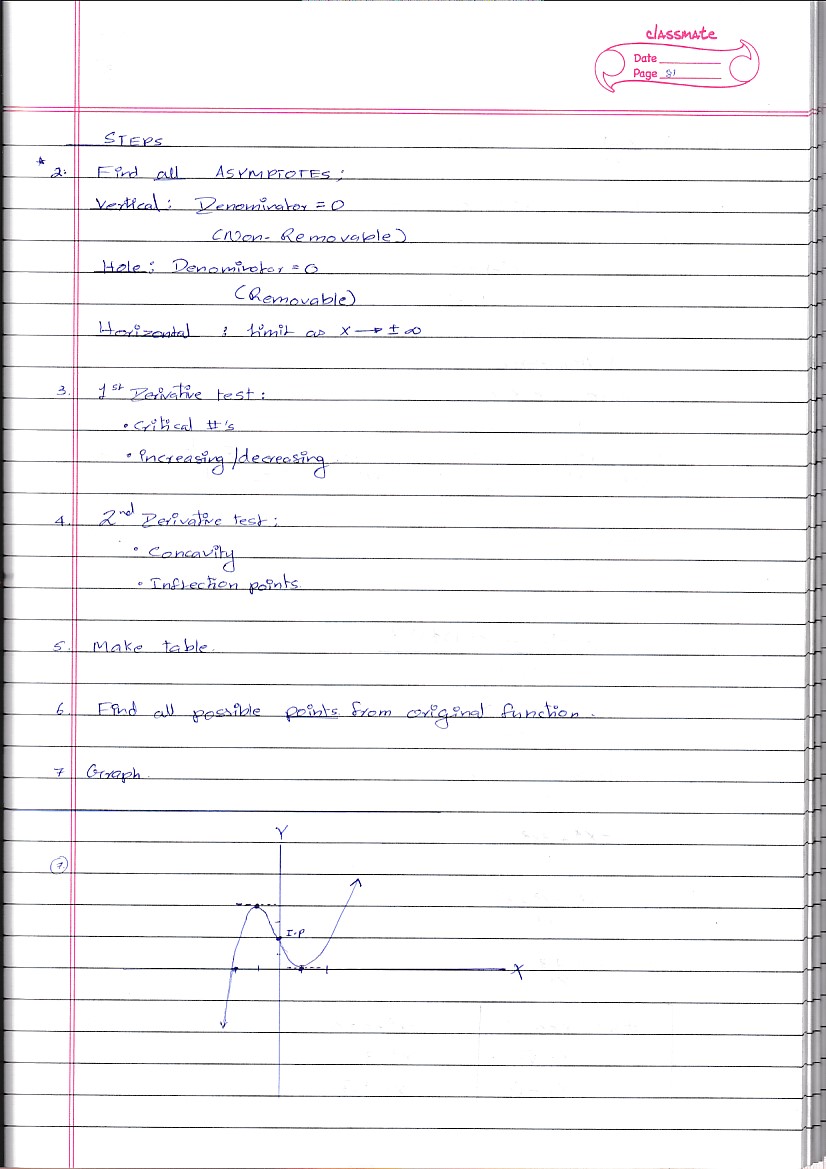 classmate
Date
Page 31
STEPS
* 2. Find all ASYMPTOTES:
Vertical: Denominator = 0
(Non-Removable)
Hole: Denominator = 0
(Removable)
Horizontal : limit as x → ± ∞
3. 1st Derivative test:
• Critical #'s
• Increasing/decreasing
4. 2nd Derivative test:
• Concavity
• Inflection points
5. Make table.
6. Find all possible points from original function.
7 Graph.
Y
7
I.P
X